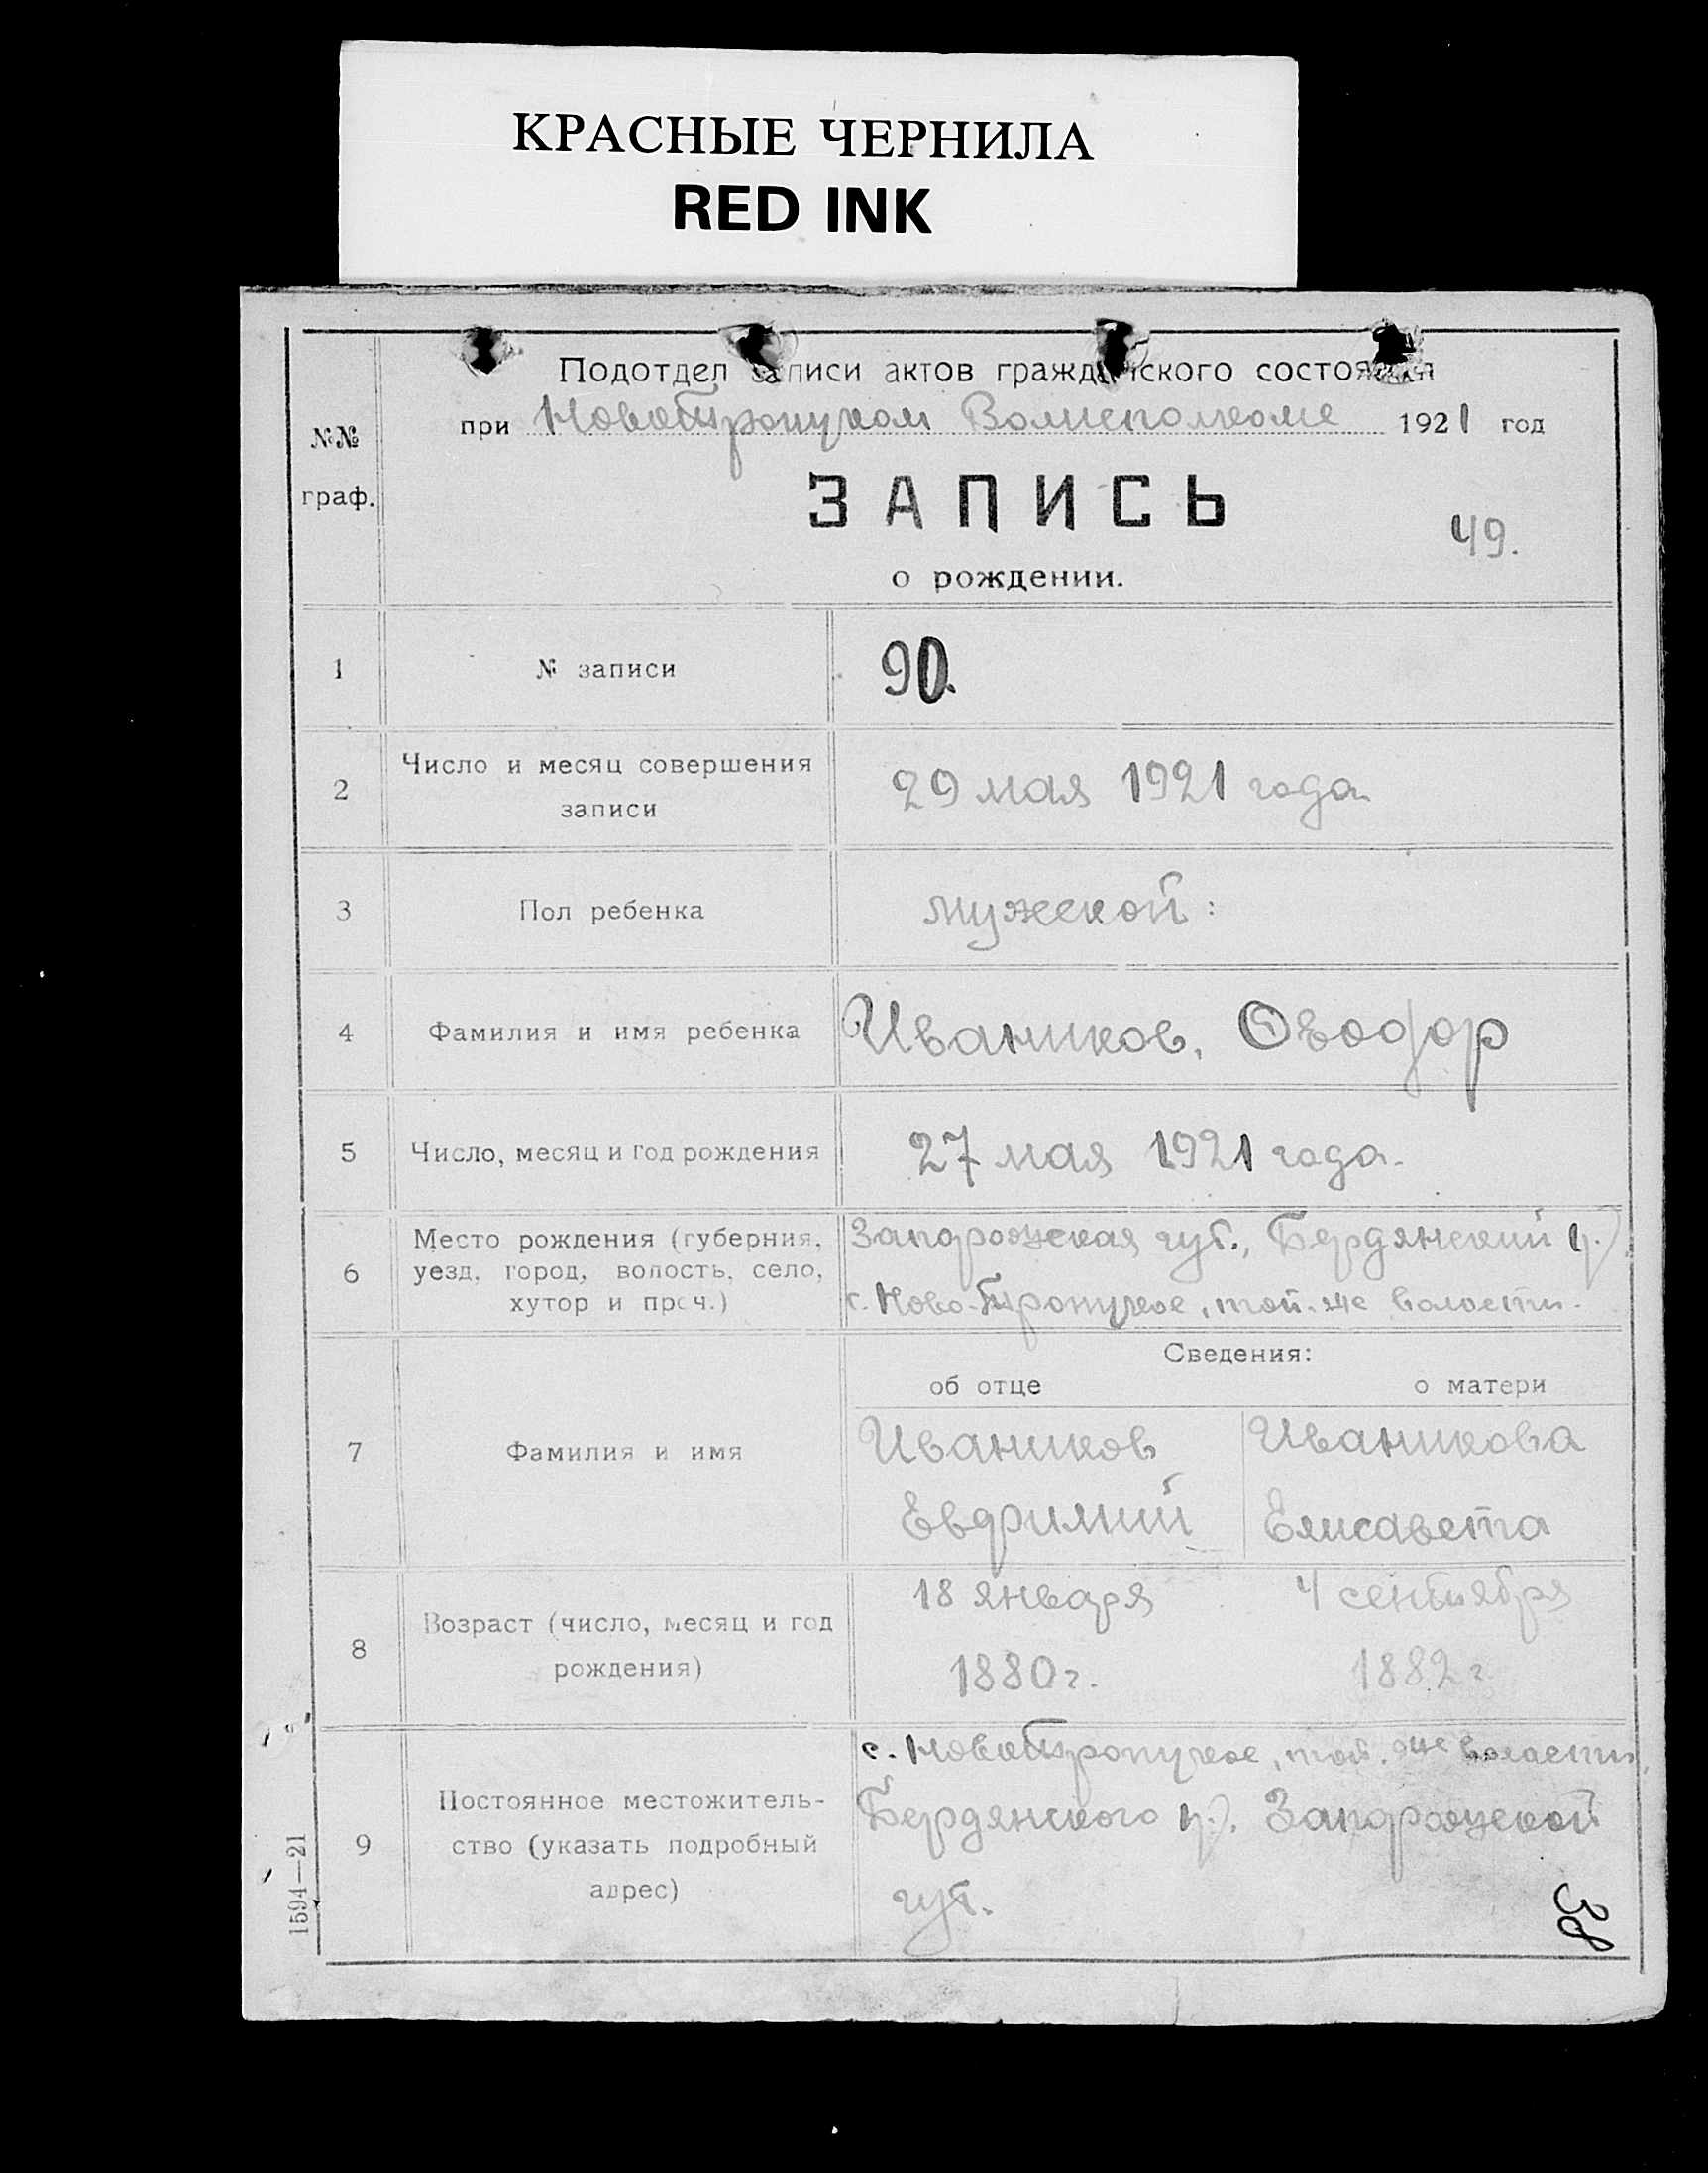 КРАСНЫЕ ЧЕРНИЛА
RED INK
Подотдел записи актов гражданского состояния
при Новотроицком Волисполкоме 1921 год
№№
граф.
ЗАПИСЬ
49.
о рождении.
1 № записи 90.
2 Число и месяц совершения
записи
29 мая 1921 года
3 Пол ребенка мужской:
4 Фамилия и имя ребенка Иваников,
5 Число, месяц и год рождения 27 мая 1921 года.
6 Место рождения (губерния,
уезд, город, волость, село,
хутор и проч.)
Запорожская губ., Бердянский у.,
с. Ново-Троицкое, той-же волости.
Сведения:
об отце о матери
7 Фамилия и имя
Иваников Иваникова
Евфимий Елисавета
8 Возраст (число, месяц и год
рождения)
18 января 4 сентября
1880 г. 1882 г.
9 Постоянное местожитель-
ство (указать подробный
адрес)
с. Новотроицкое, той-же волости,
Бердянского у., Запорожской
губ.
38
1594—21